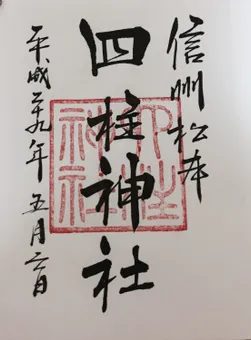 信州松本
四柱神社
四柱神社
平成二十九年五月六日